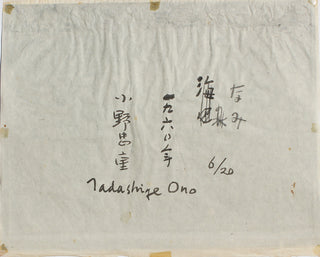 なみ
海
6/20
一九六〇年
小野忠重
Tadashige Ono